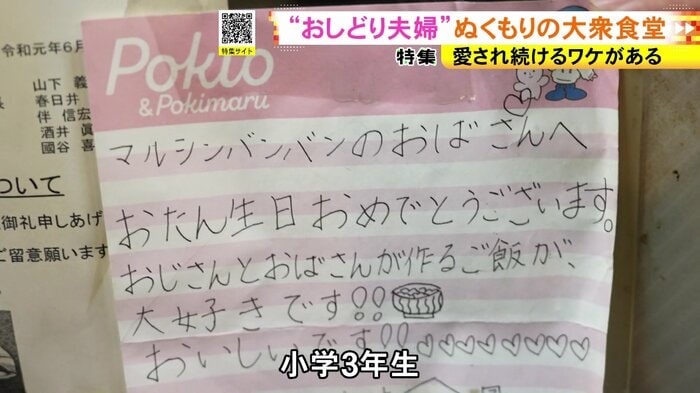 特集サイト
“おしどり夫婦”ぬくもりの大衆食堂
特集
愛され続けるワケがある
令和元年6月
山下 義
春日井
伴 信宏
酒井 眞
國谷 喜
ついて
御礼申しあげ
ご留意願います
Pokio
& Pokimaru
マルシンバンバンのおばさんへ
おたん生日おめでとうございます。
おじさんとおばさんが作るご飯が、
大好きです!!
おいしいです!!♡♡♡♡♡♡♡♡
小学3年生